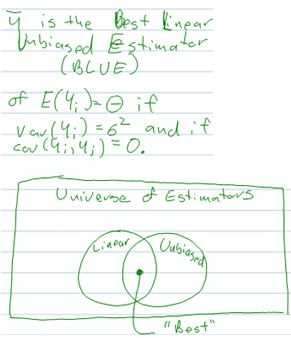 ȳ is the Best Linear
Unbiased Estimator
(BLUE)
of E(Yᵢ)=θ if
var(Yᵢ)=σ² and if
cov(Yᵢ,Yⱼ)=0.
Universe of Estimators
Linear
Unbiased
"Best"